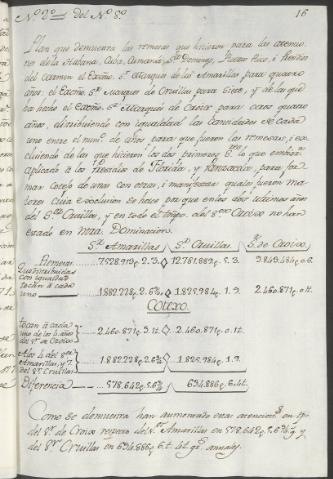 N.º 2.º del N.º 8.º
16
Plan que demuestra las remesas que hicieron para las atenciones
de la Habana, Cuba, Cumaná, S.to Domingo, Puerto Rico, i Presidio
del Carmen el Exc̃mo. S.or Marqués de las Amarillas para quatro
años, el Exc̃mo. S.or Marques de Cruillas para siete, y de las que
ha hecho el Exc̃mo. S.or Marqués de Croix para otros quatro
años, distribuiendo con igualdad las cantidades de cada
uno entre el num.o de años para que fueron las remesas, i ex
cluiendo de las que hicieron los dos primeros
aplicado à los Presidios de Florida, y Panzacola, para for
mar cotejo de unas con otras, i manifestar quales fueron ma
iores, cuia exclusion se hace por que en los dos últimos años
del S.or Cruillas, y en todo el tiempo del S.or Croix no han
estado en nuestra Dominacion.
S.or Amarillas S.or Cruillas S.or de Croix
Remesas 7.528.913p. 2.3. 12.781.882p. 5.3. 9.843.484p. 0.6.
Que distribuidas
con igualdad
tocan á cada
uno 1.882.228p. 2.6¾ 1.825.984p. 1.9. 2.460.871p. 0.1½
Cotexo.
tocan á cada
uno de los 4 años
del S.or de Croix 2.460.871p. 0.1½ 2.460.871p. 0.1½
A los 4 del S.or
Amarillas, y 7
del S.or Cruillas 1.882.228p. 2.6¾ 1.825.984p. 1.9.
Diferencia 578.642p. 5.6¾ 634.886p. 6.4½
Como se demuestra han aumentado estas atenciones en tiempo
del S.or de Croix respecto del S.or Amarillas en 578.642p. 5.6¾ y
del S.or Cruillas en 634.886p. 6.4½ g.s anuales.